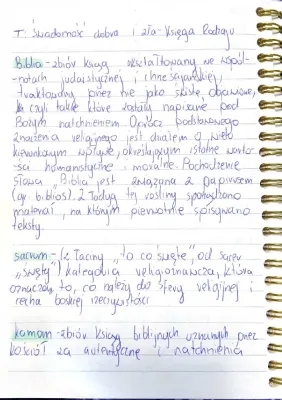 T: Świadomość dobra i zła - Księga Rodzaju
Biblia - zbiór ksiąg ukształtowany we wspól-
-notach judaistycznej i chrześcijańskiej,
traktowany przez nie jako święte objawione,
czyli takie które zostały napisane pod
Bożym natchnieniem. Oprócz podstawowego
znaczenia religijnego jest dziełem o wielo
kierunkowym wpływie, określającym istotne warto-
ści humanistyczne i moralne. Pochodzenie
słowa "Biblia" jest związane z papirusem
(gr. biblios). Z łodyg tej rośliny sporządzano
materiał, na którym pierwotnie spisywano
teksty.
sacrum - (z łaciny "to co święte", od sacer
"święty") kategoria religioznawcza, która
oznacza to, co należy do sfery religijnej i
cecha boskiej rzeczywistości
kanon - zbiór ksiąg biblijnych uznanych przez
kościół za autentyczne i natchnienia